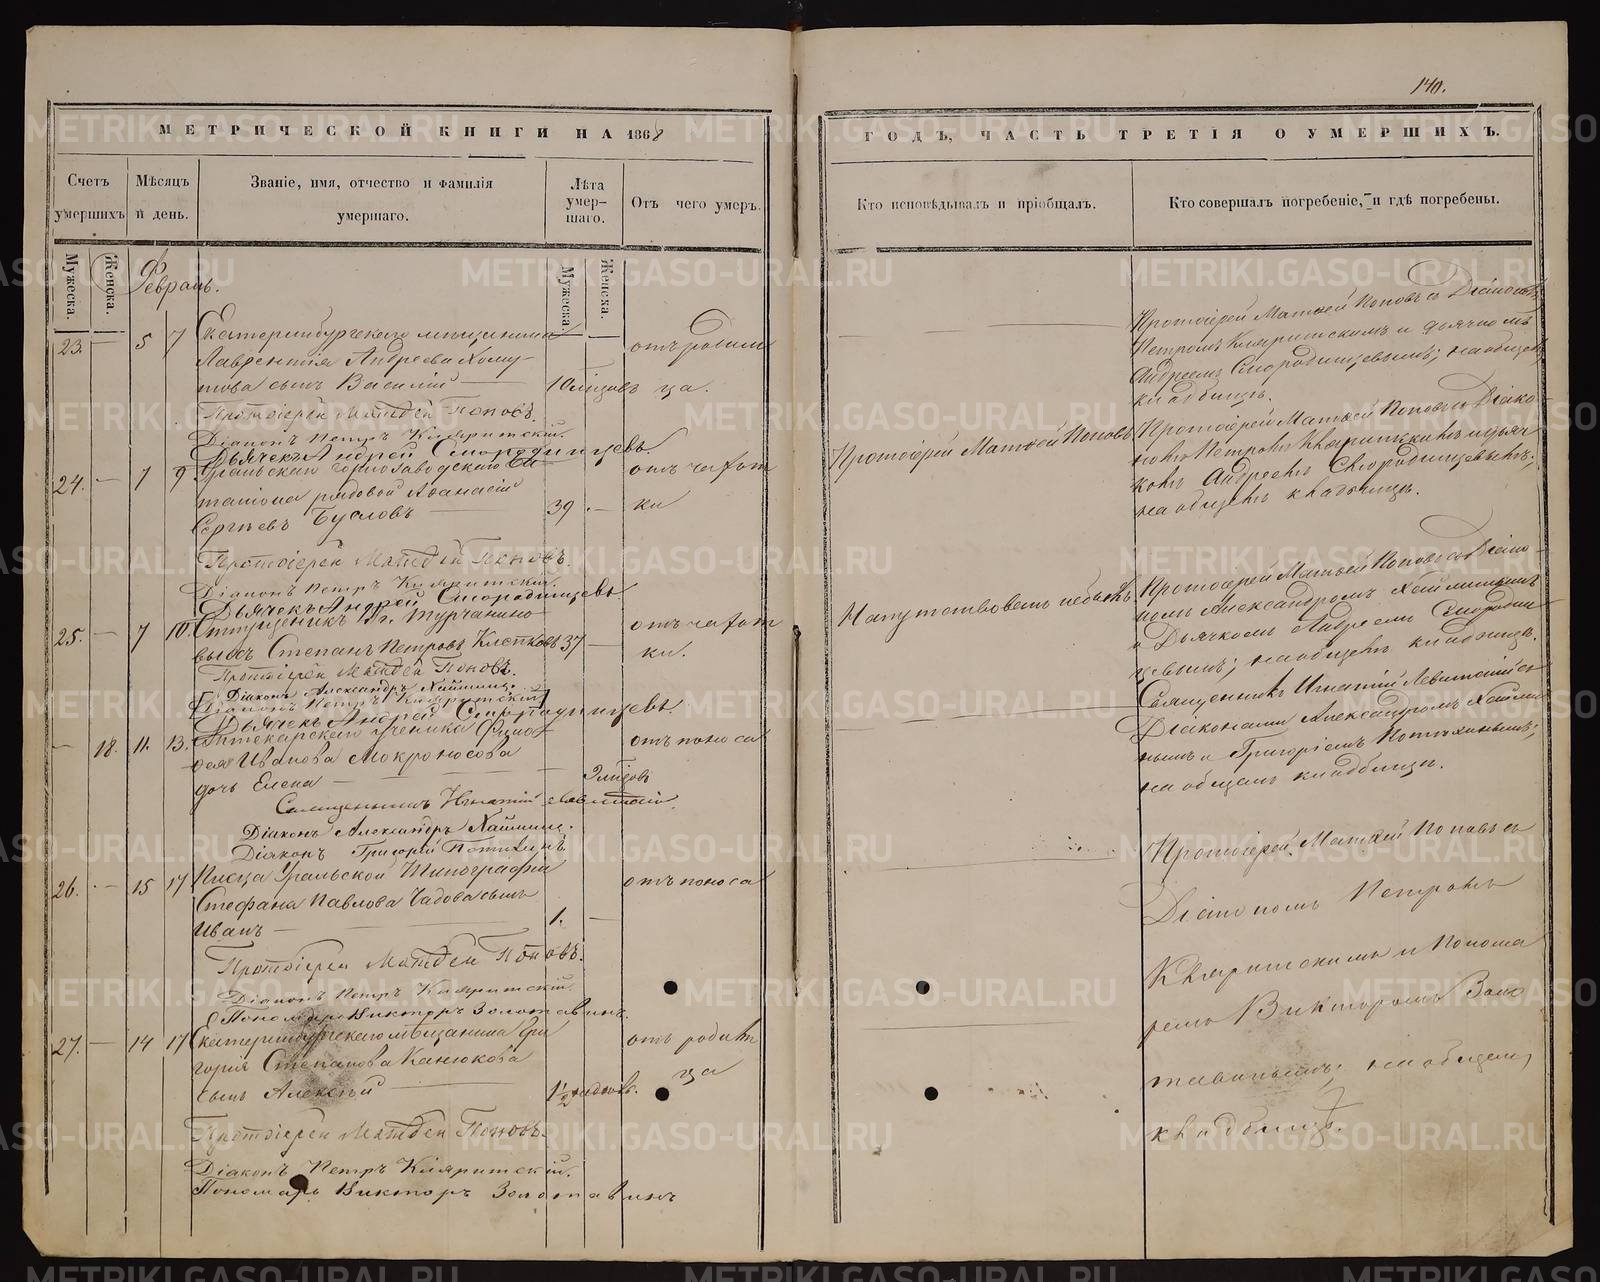 140.
МЕТРИЧЕСКОЙ КНИГИ НА 1868
ГОДЪ, ЧАСТЬ ТРЕТІЯ О УМЕРШИХЪ.
Счетъ умершихъ
Мѣсяцъ и день.
Званіе, имя, отчество и фамилія умершаго.
Лѣта умер-шаго.
Отъ чего умеръ.
Кто исповѣдывалъ и пріобщалъ.
Кто совершалъ погребеніе, и гдѣ погребены.
Мужеска. Женска.
Мужеска. Женска.
Февраль.
23. — 5 7 Екатеринбургскаго мѣщанина
Лаврентія Андреева Хому-
това сынъ Василій 10 мѣсцовъ отъ родим
ца.
Протоіерей Матѳей Поповъ.
Діаконъ Петръ Кляритскій.
Дьячекъ Андрей Смородинцевъ.
Протоіерей Матѳей Поповъ съ Діакономъ
Петромъ Кляритскимъ и дьячкомъ
Андреемъ Смородинцевымъ; на общемъ
кладбищѣ.
24. — 7 9 Уральскаго горнозаводскаго ба-
таліона рядовой Аѳанасій
Сергѣевъ Бусловъ 39. — отъ чахот
ки
Протоіерей Матѳей Поповъ.
Діаконъ Петръ Кляритскій.
Дьячекъ Андрей Смородинцевъ.
Протоіерей Матѳей Поповъ
Протоіерей Матѳей Поповъ съ Діако
номъ Петромъ Кляритскимъ и дьяч
комъ Андреемъ Смородинцевымъ;
на общемъ кладбищѣ.
25. — 7 10 Турчанино
выхъ Степанъ Петровъ 37 — отъ чахот
ки.
Протоіерей Матѳей Поповъ.
Діаконъ Александръ Хаймин
[Діаконъ Петръ Кляритскій]
Дьячекъ Андрей Смородинцевъ.
Напутствованъ небылъ.
Протоіерей Матѳей Поповъ съ Діако-
номъ Александромъ
и Дьячкомъ Андреемъ Смородин
цевымъ; на общемъ кладбищѣ.
— 18. 11. 13. Аптекарскаго ученика
Иванова Мокроносова
дочь Елена мѣсцовъ отъ поноса
Священникъ Игнатій Левитскій.
Діаконъ Александръ
Діаконъ Григорій Потѣхинъ
Священникъ Игнатій Левитскій съ
Діаконами Александромъ
и Григоріемъ Потѣхинымъ;
на общемъ кладбищѣ.
26. — 15 17 Писца Уральской Типографіи
Стефана Павлова Чадова сынъ
Иванъ 1. — отъ поноса
Протоіерей Матѳей Поповъ.
Діаконъ Петръ Кляритскій.
Пономарь Викторъ Золотавинъ.
27. — 14 17 Екатеринбургскаго мѣщанина Гри
горія Степанова Канюкова
сынъ Алексѣй 1½ годовъ. отъ родим
ца
Протоіерей Матѳей Поповъ.
Діаконъ Петръ Кляритскій.
Пономарь Викторъ Золотавинъ
Протоіерей Матѳей Поповъ съ
Діакономъ Петромъ
Кляритскимъ и Понома
ремъ Викторомъ Золо
тавинымъ; на общемъ
кладбищѣ.
METRIKI.GASO-URAL.RU